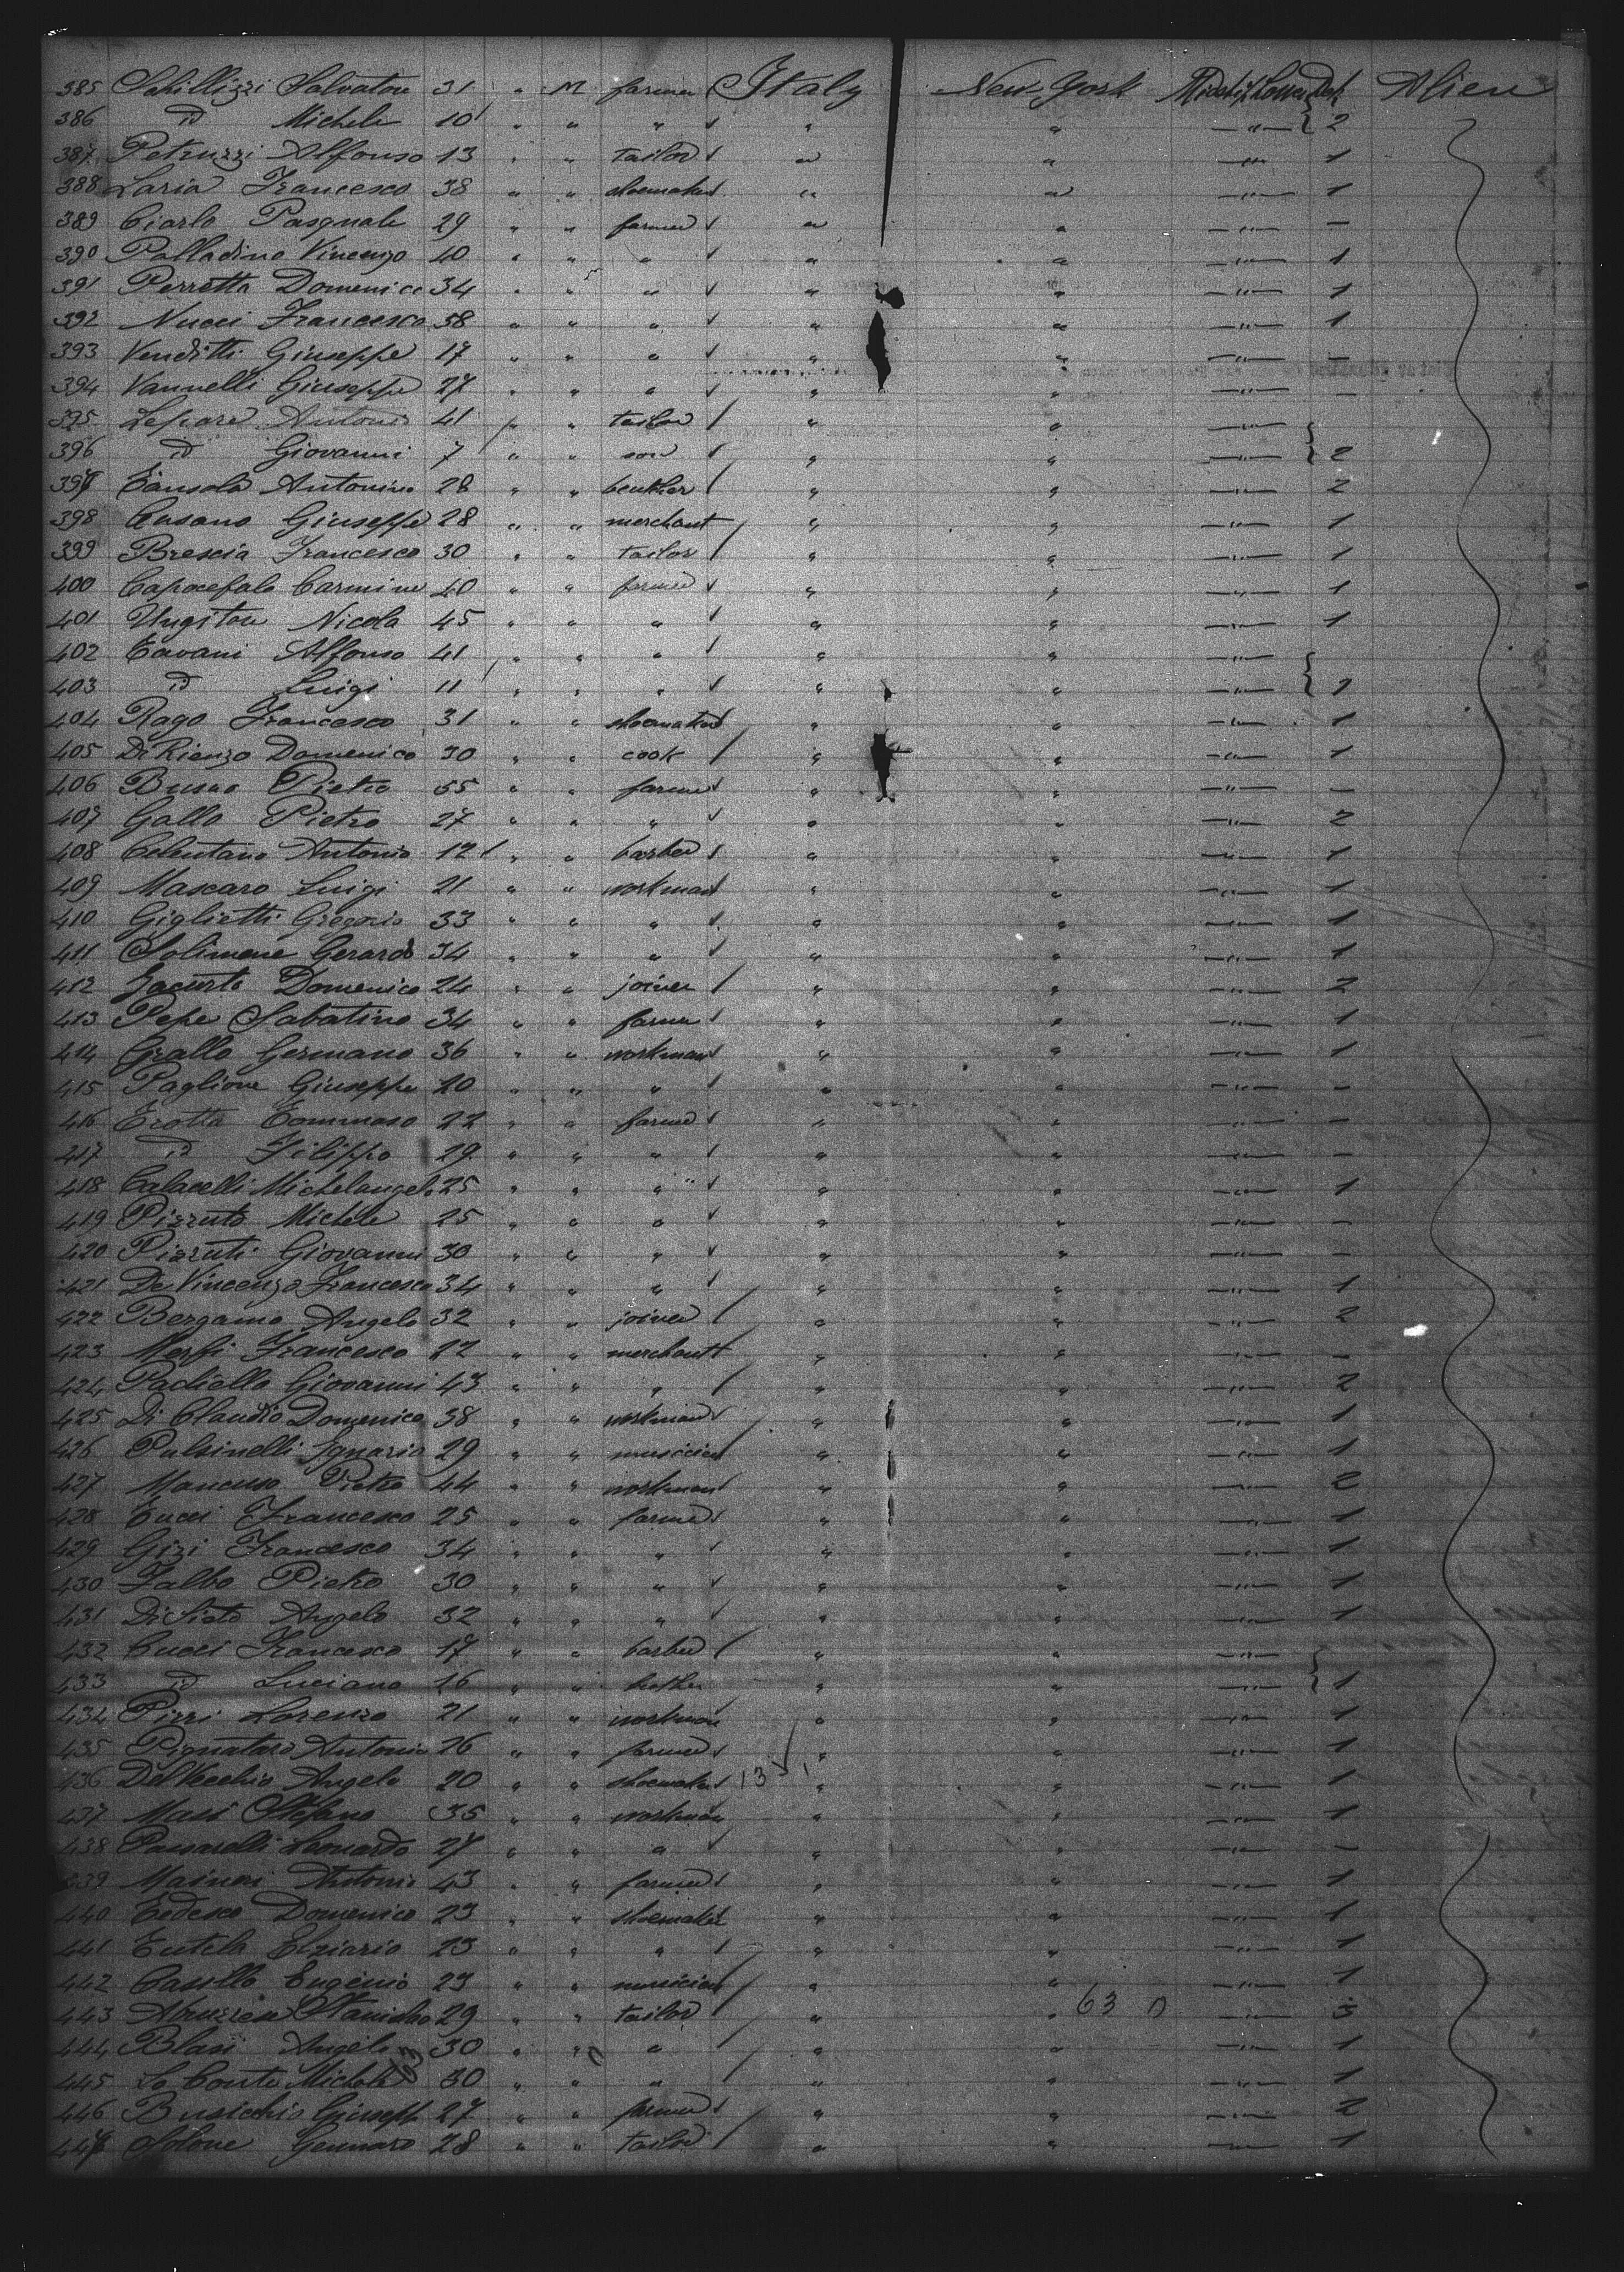 385 Schillizzi Salvatore 31 " M farmer Italy New York Middle Lower Deck Alien
386 id Michele 10 " " " " " —"— 2
387 Petruzzi Alfonso 13 " " tailor " " —"— 1
388 Laria Francesco 38 " " shoemaker " " —"— 1
389 Ciarlo Pasquale 29 " " farmer " " —"— —
390 Palladino Vincenzo 40 " " " " " —"— 1
391 Perrotta Domenico 34 " " " " " —"— 1
392 Nucci Francesco 38 " " " " " —"— 1
393 Venditti Giuseppe 17 " " " " " —"— —
394 Vannelli Giuseppe 27 " " " " " —"— —
395 Lepore Antonio 41 " " tailor " " —"—
396 id Giovanni 7 " " son " " —"— 2
397 Tansola Antonino 28 " " " " —"— 2
398 Cusano Giuseppe 28 " " merchant " " —"— 1
399 Brescia Francesco 30 " " tailor " " —"— 1
400 Capocefalo Carmine 40 " " farmer " " —"— 1
401 Ungitore Nicola 45 " " " " " —"— 1
402 Tavani Alfonso 41 " " " " " —"—
403 id Luigi 11 " " " " " —"— 1
404 Rago Francesco 31 " " shoemaker " " —"— 1
405 Di Rienzo Domenico 30 " " cook " " —"— 1
406 Pietro 55 " " farmer " " —"— —
407 Gallo Pietro 27 " " " " " —"— 2
408 Celentano Antonio 12 " " barber " " —"— 1
409 Mascaro Luigi 21 " " workman " " —"— 1
410 Giglietti Gregorio 33 " " " " " —"— 1
411 Solimene Gerardo 34 " " " " " —"— 1
412 Domenico 24 " " joiner " " —"— 2
413 Pepe Sabatino 34 " " farmer " " —"— 1
414 Grallo Germano 36 " " workman " " —"— 1
415 Paglione Giuseppe 20 " " " " " —"— —
416 Trotta Tommaso 22 " " farmer " " —"— —
417 id Filippo 29 " " " " " —"— —
418 Calacelli Michelangelo 25 " " " " " —"— 1
419 Pizzuto Michele 25 " " " " " —"— —
420 Pizzuti Giovanni 30 " " " " " —"— —
421 De Vincenzo Francesco 34 " " " " " —"— 1
422 Bergamo Angelo 32 " " joiner " " —"— 2
423 Francesco 22 " " merchant " " —"— —
424 Padiello Giovanni 43 " " " " " —"— 2
425 Di Claudio Domenico 38 " " workman " " —"— 1
426 Pulsinelli Ignazio 29 " " musician " " —"— 1
427 Mancuso Pietro 44 " " workman " " —"— 2
428 Tucci Francesco 25 " " farmer " " —"— 1
429 Gizi Francesco 34 " " " " " —"— 1
430 Falbo Pietro 30 " " " " " —"— 1
431 Di Sisto Angelo 32 " " " " " —"— 1
432 Cucci Francesco 17 " " barber " " —"—
433 id Luciano 16 " " brother " " —"— 1
434 Pizzi Lorenzo 21 " " workman " " —"— 1
435 Pignataro Antonio 26 " " farmer " " —"— 1
436 Del Vecchio Angelo 20 " " shoemaker 13 " " —"— 1
437 Masi Stefano 35 " " workman " " —"— 1
438 Pansarelli Leonardo 27 " " " " " —"— —
439 Mainieri Antonio 43 " " farmer " " —"— 1
440 Tedesco Domenico 23 " " shoemaker " " —"— 1
441 Tutela Elziario 23 " " " " " —"— 1
442 Casillo Eugenio 23 " " musician " " —"— 1
443 Abruzzese Stanislao 29 " " tailor " " 63 —"— 3
444 Blasi Angelo 30 " " " " " —"— 1
445 Lo Conte Michele 30 " " " " " —"— 1
446 Busicchio Giuseppe 27 " " farmer " " —"— 2
447 Solone Gennaro 28 " " tailor " " —"— 1